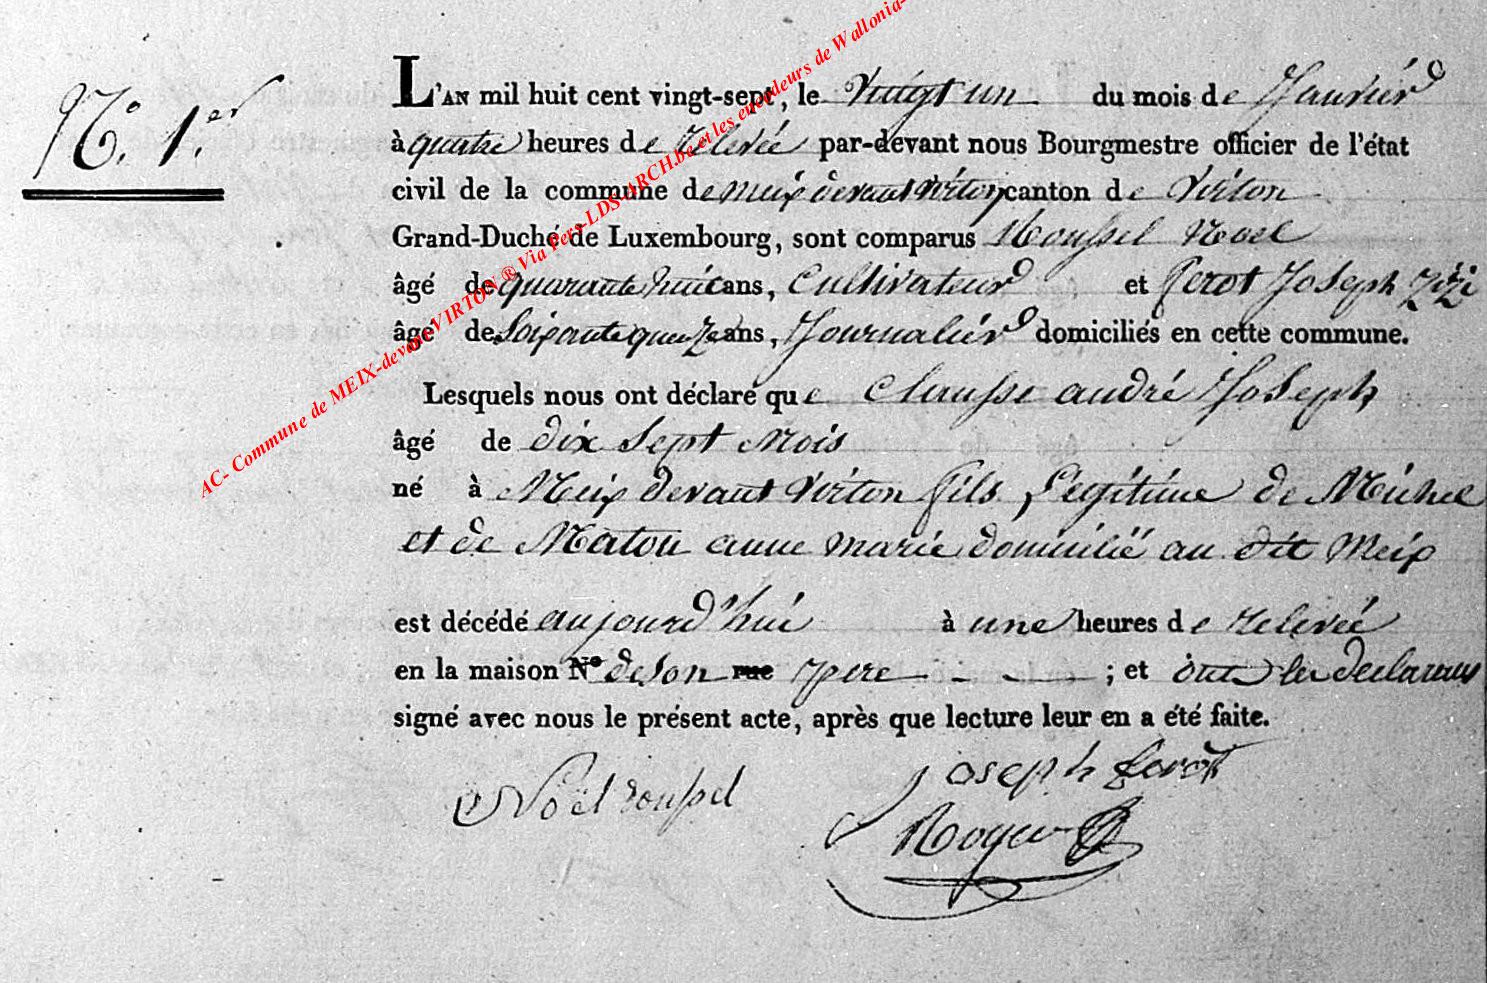 N.° 1.er
L'AN mil huit cent vingt-sept, le Vingt un du mois de Janviér
à quatre heures de relevée par-devant nous Bourgmestre officier de l'état
civil de la commune de meix devant Virton canton de Virton
Grand-Duché de Luxembourg, sont comparus Roussel Noel
âgé de quarante huit ans, Cultivateur et ferot Joseph
âgé de Soixante quenze ans, Journaliér domiciliés en cette commune.
Lesquels nous ont déclaré que Clausse andré Joseph
âgé de dix Sept Mois
né à Meix devant Virton fils Legitime de Michel
et de Maton anne marie domicilié au dit Meix
est décédé aujourd'hui à une heures de relevée
en la maison N° de son rue pere ; et ont les declarans
signé avec nous le présent acte, après que lecture leur en a été faite.
Noël roussel
Joseph ferot
AC- Commune de MEIX-devant-VIRTON ® Via Pers-LDS-ARCH.be et les encodeurs de Wallonia-